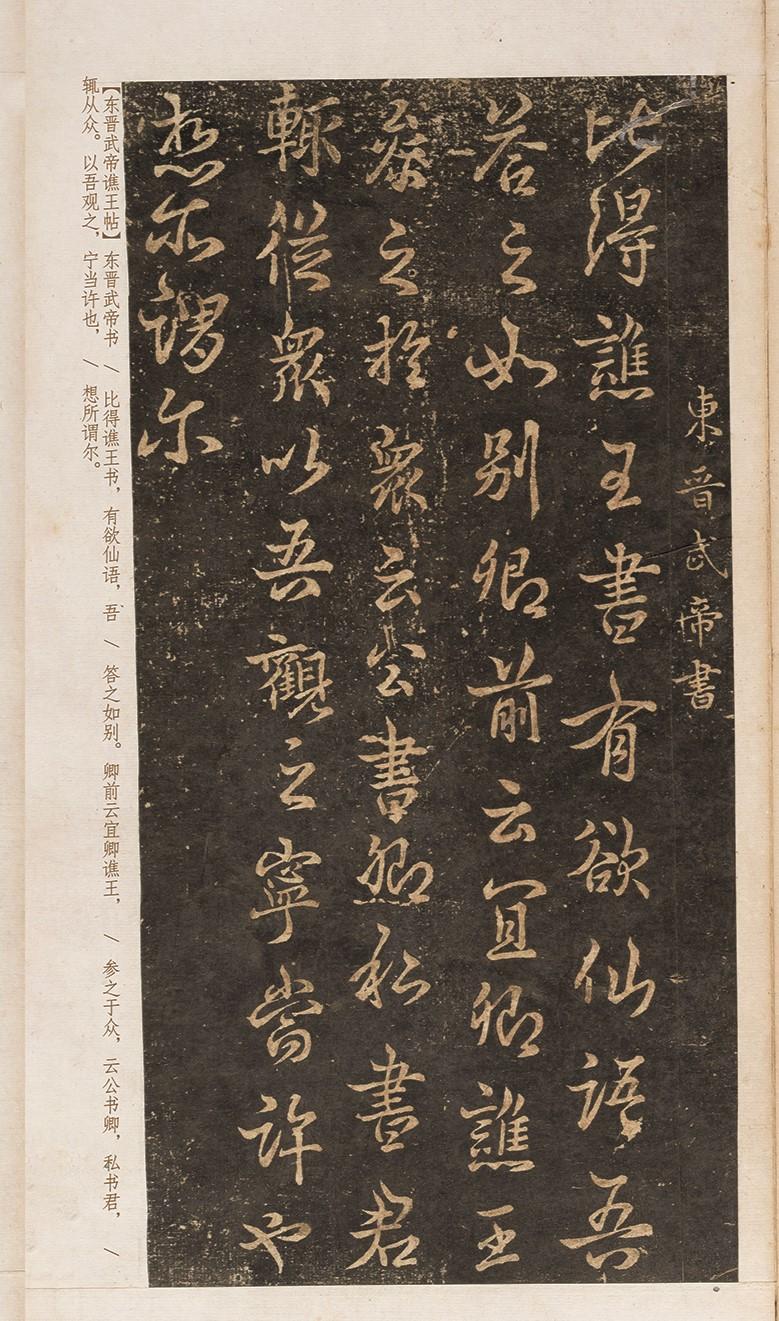 東晋武帝書
比得譙王書有欲仙語吾
荅之如别卿前云宜卿譙王
叅之於眾云公書卿私書君
輒從眾以吾觀之寧當許也
想所謂尔
【东晋武帝谯王帖】 东晋武帝书 / 比得谯王书，有欲仙语，吾 / 答之如别。卿前云宜卿谯王， / 参之于众，云公书卿，私书君， /
辄从众。以吾观之，宁当许也， / 想所谓尔。